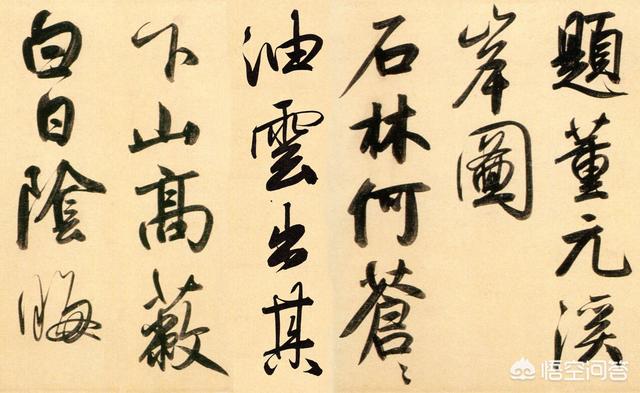 題董元溪
岸圖
石林何蒼〻
油雲出其
下山高蔽
白日陰晦
悟空问答